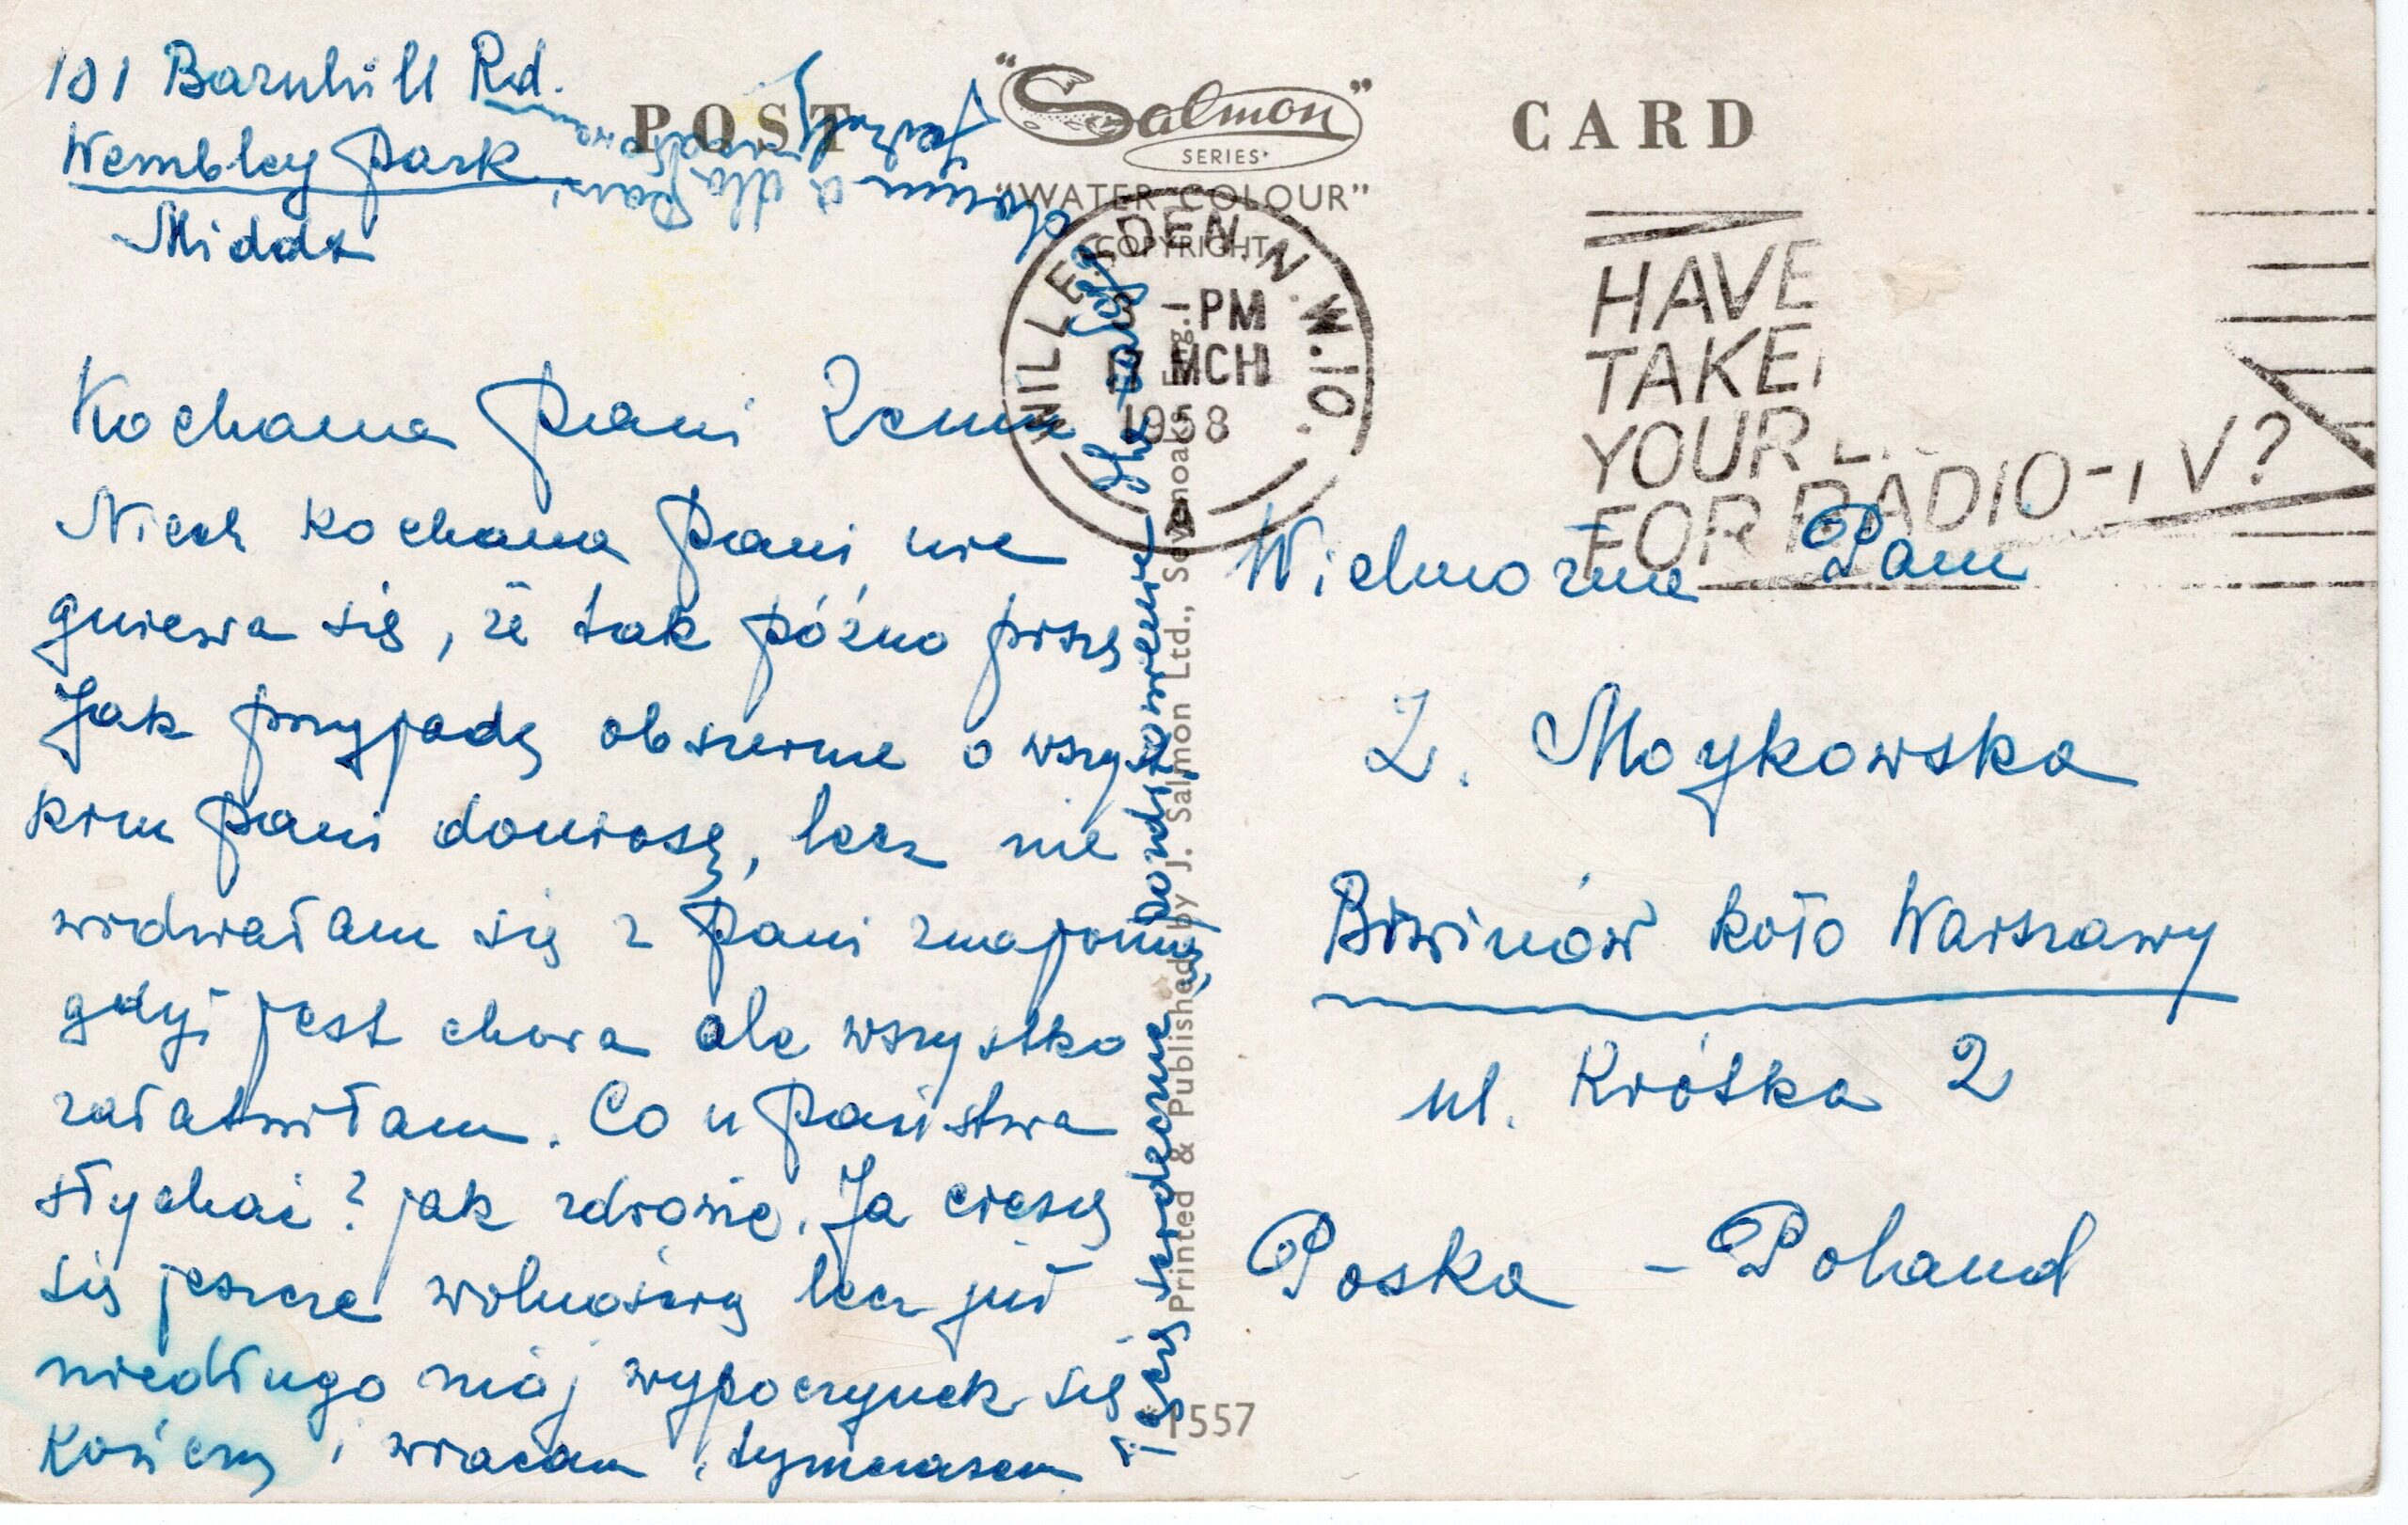 101 Barnhill Rd.
Wembley Park
Middx
POST CARD
"Salmon"
SERIES
"WATER COLOUR"
COPYRIGHT
WILLESDEN. N.W.10.
-PM
MCH
1958
A
HAVE
TAKE
YOUR L
FOR RADIO-TV?
Kochana Pani
Niech kochana Pani nie
gniewa się, że tak późno piszę
Jak przyjadę obszernie o wszyst
kim Pani doniosę, lecz nie
widziałam się z Pani znajomą,
gdyż jest chora ale wszystko
załatwiłam. Co u Państwa
słychać? jak zdrowie. Ja cieszę
się jeszcze wolnością lecz już
niedługo mój wypoczynek się
kończy i wracam, tymczasem
łączę serdeczne pozdrowienia
dla całej
a dla Pani
Printed & Published by J. Salmon Ltd., Sevenoaks, Eng.
1557
Wielmożna Pani
Z. Moykowska
Brwinów koło Warszawy
ul. Krótka 2
Poska - Poland